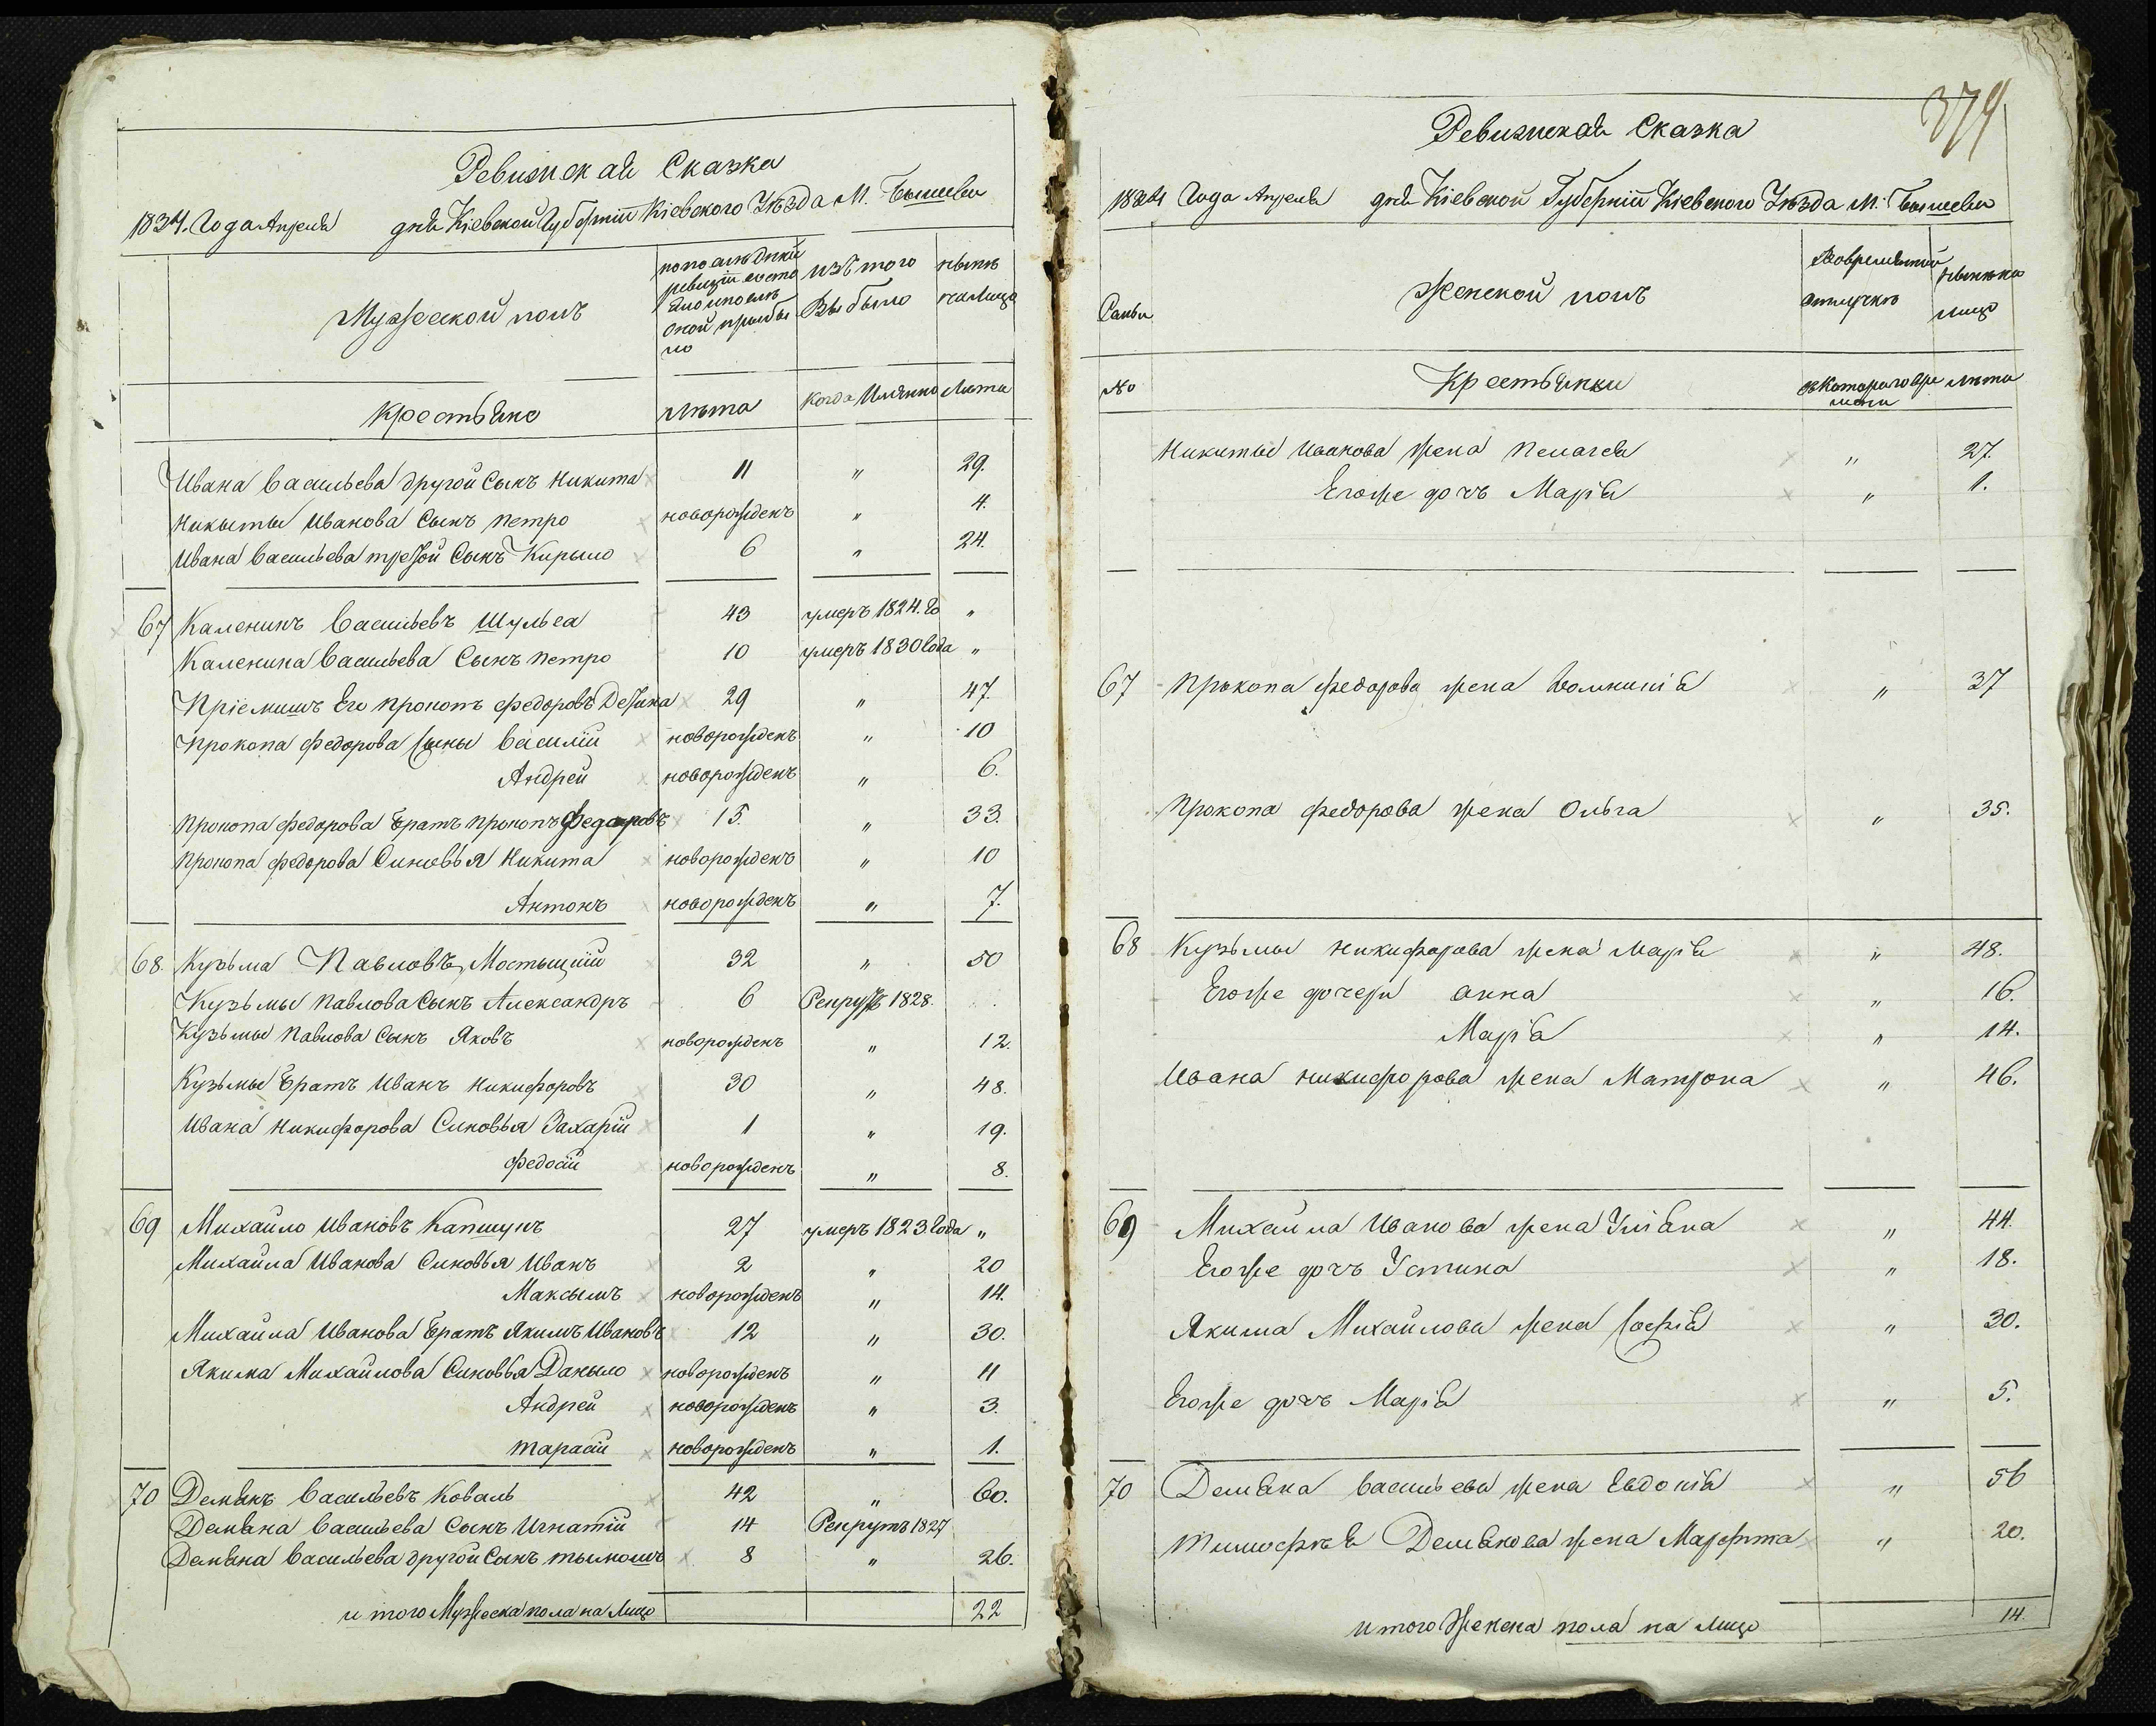 Ревизская Сказка
1834. Года Апреля дня Кіевской Губерніи Кіевского Уѣзда М. Бышева
Мужеской полъ
по последней ревизіи состояло и после оной прибыло
изъ того выбыло
ныне на лицо
Крестьяне
лѣта
Когда Имянно
Лѣта
Ивана Васильева другой Сынъ Никита 11 " 29.
Никыты Иванова Сынъ Петро новорожденъ " 4.
Ивана Васильева третой Сынъ Кирыло 6 " 24.
67 Каленикъ Васильевъ Шульга 43 умеръ 1824. Го "
Каленика Васильева Сынъ Петро 10 умеръ 1830 Года "
Пріемишъ Его Прокопъ Федоровъ 29 " 47.
Прокопа Федорова Сыны Василій новорожденъ " 10
Андрей новорожденъ " 6.
Прокопа Федорова Братъ Прокопъ Федоровъ 15. " 33.
Прокопа Федорова Синовья Никита новорожденъ " 10
Антонъ новорожденъ " 7.
68. Кузьма Павловъ Мостыцкій 32 " 50
Кузьмы Павлова Сынъ Александръ 6 Рекрутъ 1828.
Кузьмы Павлова Сынъ Яковъ новорожденъ " 12.
Кузьмы Братъ Иванъ Никифоровъ 30 " 48.
Ивана Никифорова Синовья Захарій 1 " 19.
Федосій новорожденъ " 8.
69 Михайло Ивановъ Капшукъ 27 умеръ 1823 Года "
Михайла Иванова Синовья Иванъ 2 " 20
Максымъ новорожденъ " 14.
Михайла Иванова Братъ Якимъ Ивановъ 12 " 30.
Якима Михайлова Синовья Даныло новорожденъ " 11
Андрей новорожденъ " 3.
Тарасій новорожденъ " 1.
70 Демянъ Васильевъ Коваль 42 " 60.
Демяна Васильева Сынъ Игнатій 14 Рекрутъ 1827
Демяна Васильева другой Сынъ 8 " 26.
и того Мужеска пола на Лицо 22
374
Ревизская Сказка
1834 Года Апреля дня Кіевской Губерніи Кіевского Уѣзда М. Бышева
Семьи
Женской полъ
Во временной отлучке
ныне на лицо
No
Крестьянки
съ Котораго времени
лѣта
Никиты Иванова жена Пелагея " 27.
Егоже дочь Марія " 1.
67 Прокопа Федорова жена Домникія " 37
Прокопа Федорова жена Ольга " 35.
68 Кузьмы Никифорова жена Марія " 48.
Егоже дочери Анна " 16.
Марія " 14.
Ивана Никифорова жена Матрона " 46.
69 Михайла Иванова жена Уліяна " 44.
Егоже дочь Устина " 18.
Якима Михайлова жена Софія " 30.
Егоже дочь Марія " 5.
70 Демяна Васильева жена Евдокія " 56
Тимофѣя Демянова жена Марфита " 20.
и того Женска пола на Лицо 14.